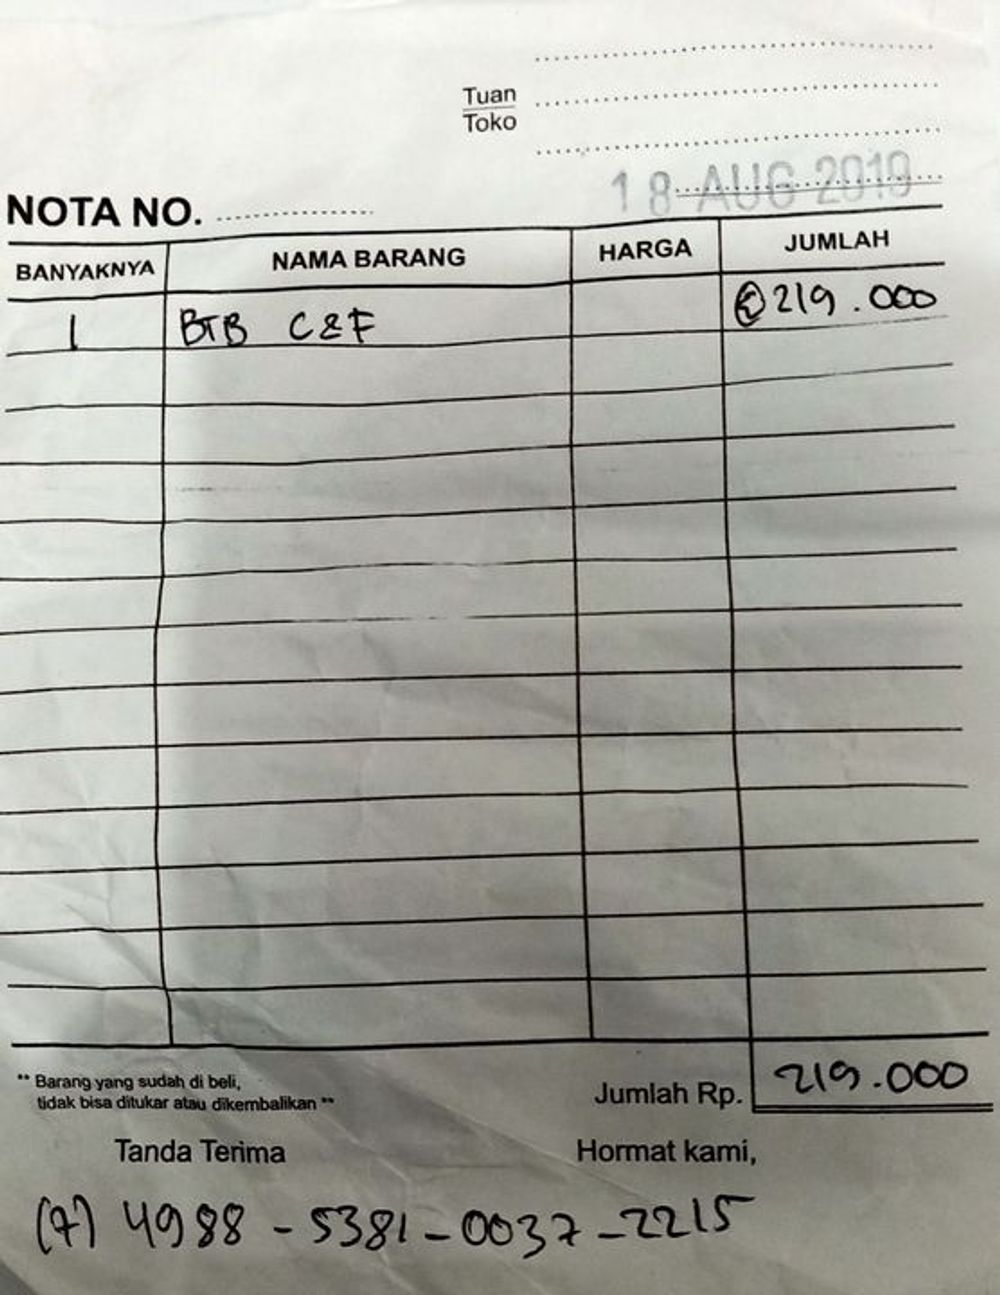 Tuan
Toko
18 AUG 2019
NOTA NO.
BANYAKNYA NAMA BARANG HARGA JUMLAH
1 BTB C&F @219.000
** Barang yang sudah di beli,
tidak bisa ditukar atau dikembalikan **
Jumlah Rp. 219.000
Tanda Terima Hormat kami,
(7) 4988-5381-0037-2215